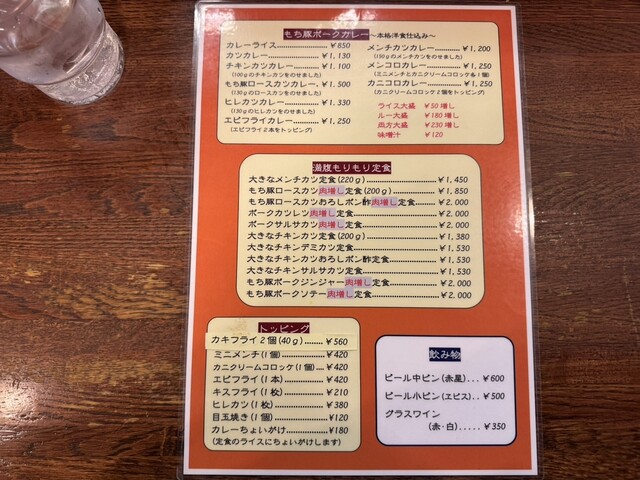 もち豚ポークカレー～本格洋食仕込み～
カレーライス……………¥850
カツカレー……………¥1,130
チキンカツカレー…………¥1,100
(100gのチキンカツをのせました)
もち豚ロースカツカレー…¥1,500
(130gのロースカツをのせました)
ヒレカツカレー…………¥1,330
(130gのヒレカツをのせました)
エビフライカレー…………¥1,250
(エビフライ2本をトッピング)
メンチカツカレー…………¥1,200
(150gのメンチカツをのせました)
メンコロカレー…………¥1,250
(ミニメンチとカニクリームコロッケ各1個)
カニコロカレー…………¥1,250
(カニクリームコロッケ2個をトッピング)
ライス大盛 ¥50増し
ルー大盛 ¥180増し
両方大盛 ¥230増し
味噌汁 ¥120
満腹もりもり定食
大きなメンチカツ定食(220g)……………¥1,450
もち豚ロースカツ肉増し定食(200g)……………¥1,850
もち豚ロースカツおろしポン酢肉増し定食………¥2,000
ポークカツレツ肉増し定食……………¥2,000
ポークサルサカツ肉増し定食……………¥2,000
大きなチキンカツ定食(200g)……………¥1,380
大きなチキンデミカツ定食……………¥1,530
大きなチキンカツおろしポン酢定食……………¥1,530
大きなチキンサルサカツ定食……………¥1,530
もち豚ポークジンジャー肉増し定食……………¥2,000
もち豚ポークソテー肉増し定食……………¥2,000
トッピング
カキフライ2個(40g)……¥560
ミニメンチ(1個)…………¥420
カニクリームコロッケ(1個)…¥420
エビフライ(1本)…………¥420
キスフライ(1枚)…………¥210
ヒレカツ(1枚)…………¥380
目玉焼き(1個)…………¥120
カレーちょいがけ…………¥180
(定食のライスにちょいがけします)
飲み物
ビール中ビン(赤星)...¥600
ビール小ビン(ヱビス)..¥500
グラスワイン
(赤・白).....¥350